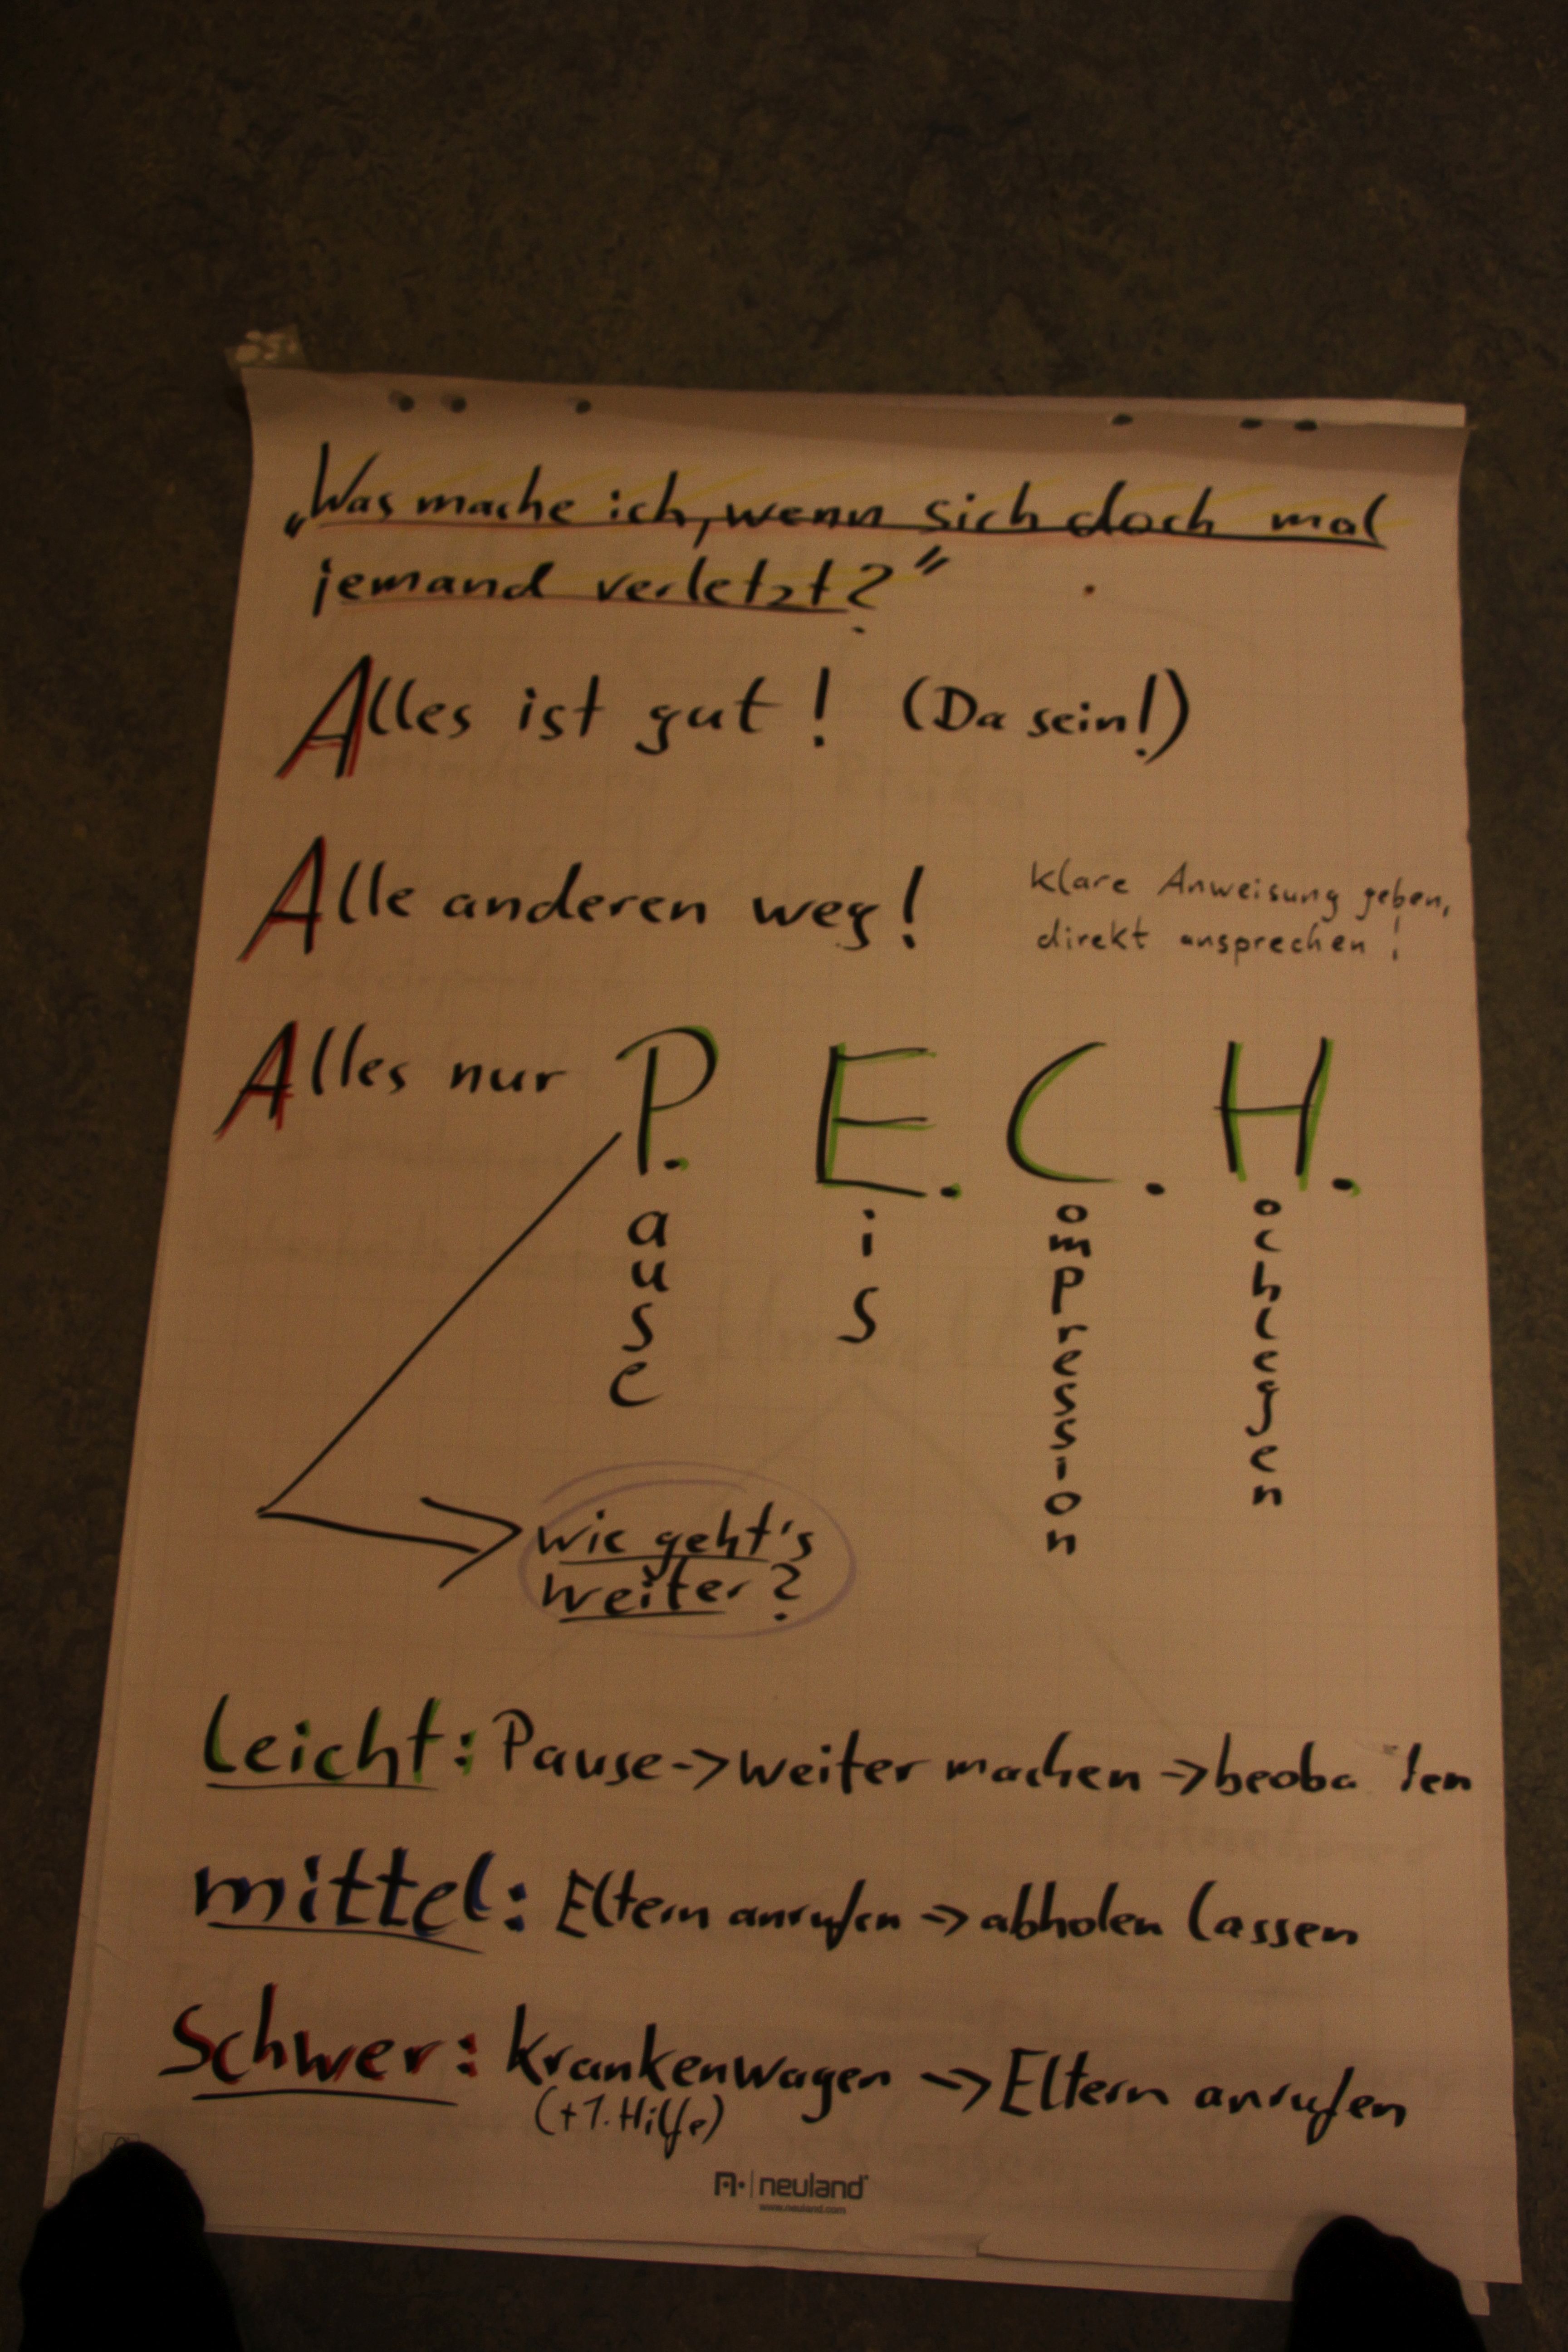 „Was mache ich, wenn sich doch mal
jemand verletzt?"
Alles ist gut! (Da sein!)
Alle anderen weg!
klare Anweisung geben,
direkt ansprechen!
Alles nur P. E. C. H.
Pause
Eis
Compression
Hochlegen
wie geht's
weiter?
Leicht: Pause -> weiter machen ->
mittel: Eltern anrufen -> abholen lassen
Schwer: Krankenwagen -> Eltern anrufen
(+1. Hilfe)
neuland
www.neuland.com